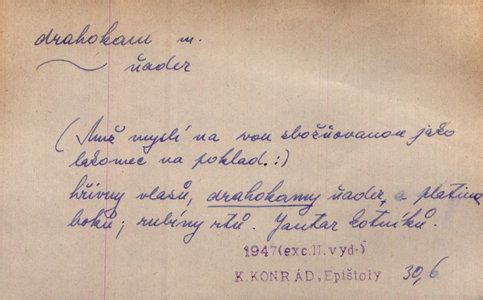 drahokam m.
ňader
(Muž myslí na svou zbožňovanou jako
lakomec na poklad.:)
hřivny vlasů, drahokamy ňader, a platina
boků; rubíny rtů. Jantar kotníků.
1947 (exc. II. vyd.)
K. KONRÁD, Epištoly 30,6